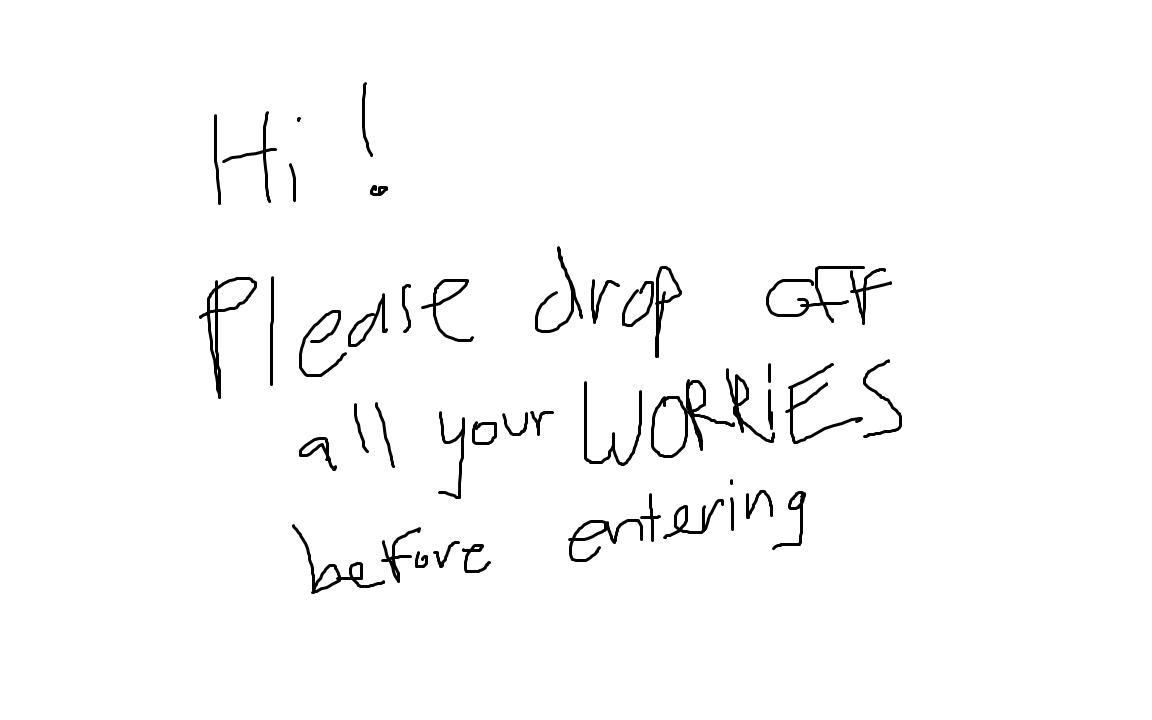 Hi!
Please drop off
all your WORRiES
before entering